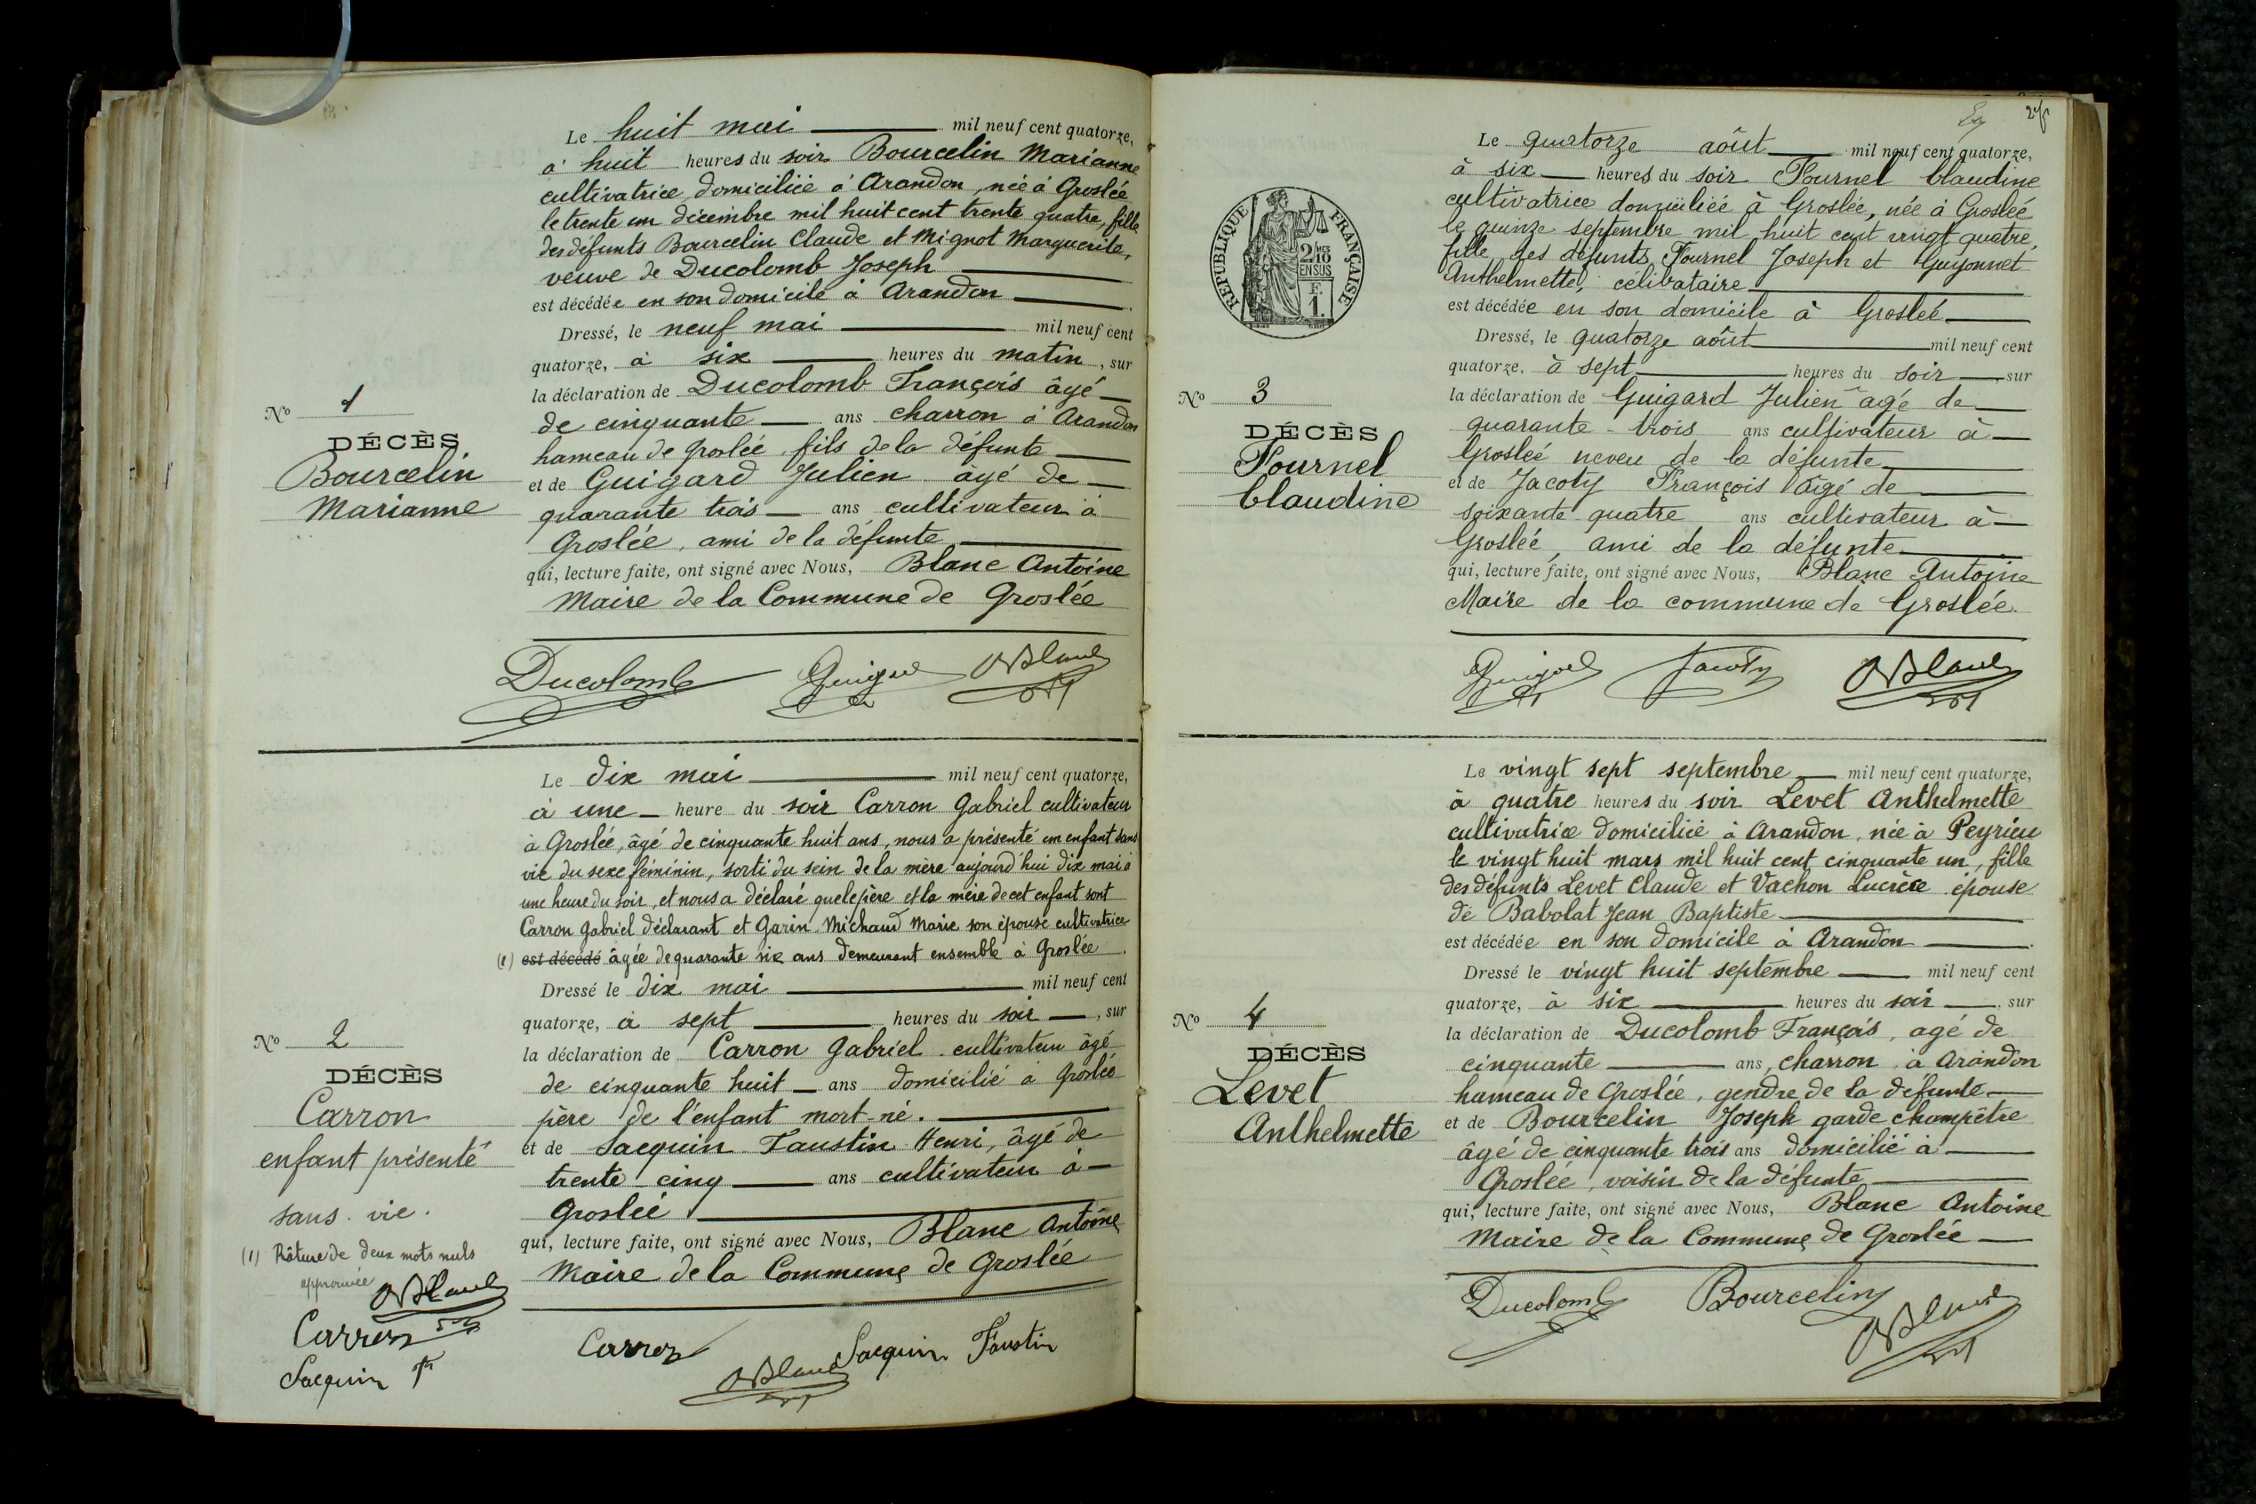 Le huit mai mil neuf cent quatorze,
à huit heures du soir Bourcelin Marianne
cultivatrice, domiciliée à Arandon, née à Groslée
le trente un décembre mil huit cent trente quatre, fille
des défunts Bourcelin Claude et Mignot Marguerite,
veuve de Ducolomb Joseph
est décédée en son domicile à Arandon
Dressé, le neuf mai mil neuf cent
quatorze, à six heures du matin, sur
la déclaration de Ducolomb François âgé
de cinquante ans charron à Arandon
hameau de Groslée, fils de la défunte
et de Guigard Julien âgé de
quarante trois ans cultivateur à
Groslée, ami de la défunte
qui, lecture faite, ont signé avec Nous, Blanc Antoine
Maire de la Commune de Groslée
No 1
DÉCÈS
Bourcelin
Marianne
Ducolomb Guigard ABlanc
Le dix mai mil neuf cent quatorze,
à une heure du soir Carron Gabriel cultivateur
à Groslée, âgé de cinquante huit ans, nous a présenté un enfant sans
vie du sexe féminin, sorti du sein de la mère aujourd'hui dix mai à
une heure du soir, et nous a déclaré que le père et la mère de cet enfant sont
Carron Gabriel déclarant et Garin Michaud Marie son épouse cultivatrice
(1) est décédé âgée de quarante six ans demeurant ensemble à Groslée.
Dressé le dix mai mil neuf cent
quatorze, à sept heures du soir, sur
la déclaration de Carron Gabriel cultivateur âgé
de cinquante huit ans domicilié à Groslée
père de l'enfant mort-né.
et de Sacquin Faustin Henri, âgé de
trente cinq ans cultivateur à
Groslée
qui, lecture faite, ont signé avec Nous, Blanc Antoine
Maire de la Commune de Groslée
No 2
DÉCÈS
Carron
enfant présenté
sans vie.
(1) Râture de deux mots nuls
approuvée ABlanc
Carron
Sacquin
Carron ABlanc Sacquin Faustin
Le quatorze août mil neuf cent quatorze,
à six heures du soir Fournel Claudine
cultivatrice domiciliée à Groslée, née à Groslée
le quinze septembre mil huit cent vingt quatre,
fille des défunts Fournel Joseph et Guyonnet
Anthelmette, célibataire
est décédée en son domicile à Groslée
Dressé, le quatorze août mil neuf cent
quatorze, à sept heures du soir sur
la déclaration de Guigard Julien âgé de
quarante-trois ans cultivateur à
Groslée neveu de la défunte
et de Jacoty François âgé de
soixante-quatre ans cultivateur à
Groslée, ami de la défunte
qui, lecture faite, ont signé avec Nous, Blanc Antoine
Maire de la commune de Groslée.
RÉPUBLIQUE FRANÇAISE
2/10
EN SUS
F.
1.
No 3
DÉCÈS
Fournel
Claudine
Guigard Jacoty ABlanc
Le vingt sept septembre mil neuf cent quatorze,
à quatre heures du soir Levet Anthelmette
cultivatrice domiciliée à Arandon, née à Peyrieu
le vingt huit mars mil huit cent cinquante un, fille
des défunts Levet Claude et Vachon Lucrèce épouse
de Babolat Jean Baptiste
est décédée en son domicile à Arandon
Dressé le vingt huit septembre mil neuf cent
quatorze, à six heures du soir, sur
la déclaration de Ducolomb François, agé de
cinquante ans, charron à Arandon
hameau de Groslée, gendre de la défunte
et de Bourcelin Joseph garde champêtre
âgé de cinquante trois ans domicilié à
Groslée, voisin de la défunte
qui, lecture faite, ont signé avec Nous, Blanc Antoine
Maire de la Commune de Groslée
No 4
DÉCÈS
Levet
Anthelmette
Ducolomb Bourcelin ABlanc